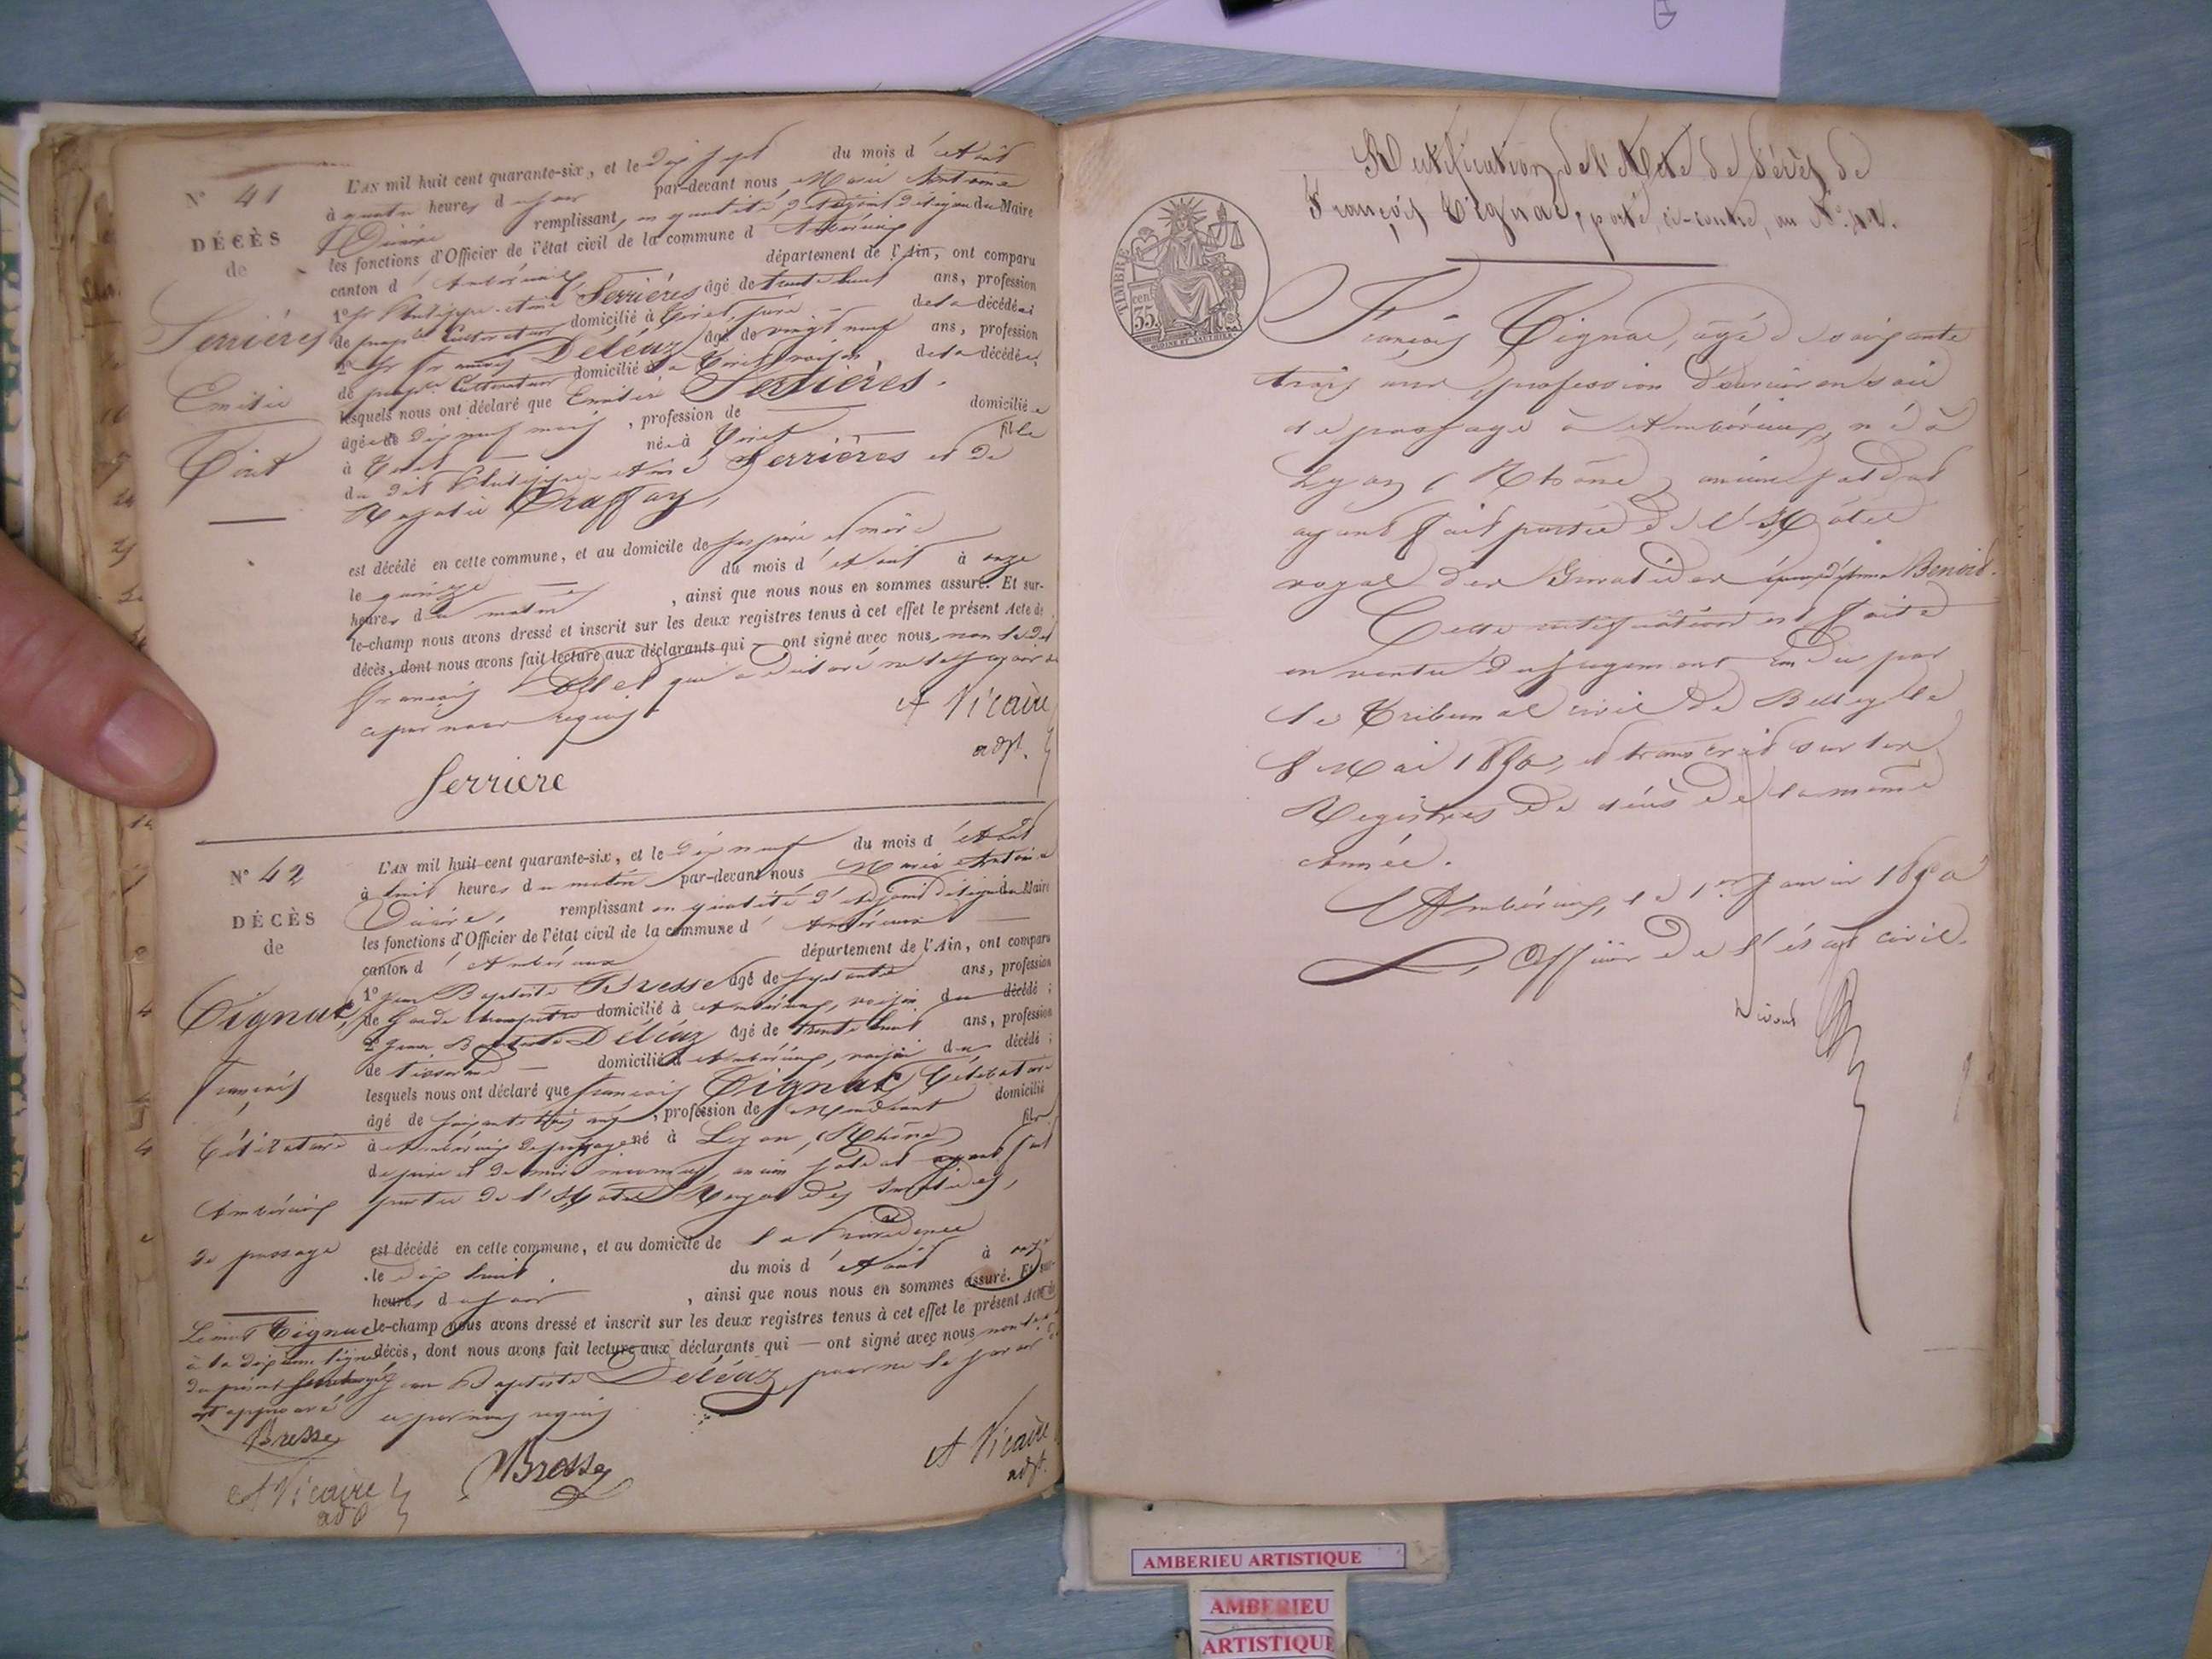 N° 41
DÉCÈS
de
Serrières
Emilie
Toret
L'AN mil huit cent quarante-six, et le dix sept du mois d'Août
à quatre heures du soir par-devant nous Marie Antoine
Vicaire remplissant en qualité d'adjoint délégué du Maire
les fonctions d'Officier de l'état civil de la commune d'Ambérieux
canton d'Ambérieux département de l'Ain, ont comparu
1° Philippe-Aimé Serrières âgé de trente huit ans, profession
de Cultivateur domicilié à père de la décédée;
2° Déléaz âgé de vingt neuf ans, profession
de Cultivateur domicilié à voisin, de la décédée;
lesquels nous ont déclaré que Emilie Serrières.
âgée de dix neuf mois, profession de — domiciliée
à — née à — fille
du dit Philippe-Aimé Serrières et de
est décédé en cette commune, et au domicile de ses père et mère
le quinze du mois d'Août à onze
heures du matin, ainsi que nous nous en sommes assuré. Et sur-
le-champ nous avons dressé et inscrit sur les deux registres tenus à cet effet le présent Acte de
décès, dont nous avons fait lecture aux déclarants qui — ont signé avec nous, non le dit
François Déléaz qui a déclaré ne le savoir de
ce par nous requis
A Vicaire
adjt.
Serriere
N° 42
DÉCÈS
de
Tignac,
François
Célibataire
Ambérieux
de passage
L'AN mil huit-cent quarante-six, et le dix neuf du mois d'Août
à huit heures du matin par-devant nous Marie Antoine
Vicaire, remplissant en qualité d'Adjoint délégué du Maire
les fonctions d'Officier de l'état civil de la commune d'Ambérieux
canton d'Ambérieux département de l'Ain, ont comparu
1° Jean Baptiste Bresse âgé de septante ans, profession
de Garde champêtre domicilié à Ambérieux, voisin du décédé;
2° Jean Baptiste Déléaz âgé de trente huit ans, profession
de tisserand — domicilié à Ambérieux, voisin du décédé;
lesquels nous ont déclaré que François Tignac Célibataire
âgé de soixante trois ans, profession de Mendiant domicilié
à Ambérieux de passage né à Lyon, (Rhône) fils
de père et de mère inconnus, ancien soldat ayant fait
partie de l'Hôtel Royal des Invalides,
est décédé en cette commune, et au domicile de la Providence
le dix huit du mois d'Août à
heures du soir, ainsi que nous nous en sommes assuré. Et sur-
le-champ nous avons dressé et inscrit sur les deux registres tenus à cet effet le présent Acte de
décès, dont nous avons fait lecture aux déclarants qui — ont signé avec nous non le dit
Jean Baptiste Déléaz pour ne le savoir
ce par nous requis
Le mot Tignac
à la dixième ligne
du présent
est approuvé
Bresse
A Vicaire
adjt
Bresse
A Vicaire
adjt.
Rectification de l'Acte de décès de
François Tignac, porté, ci-contre, au N° 42.
TIMBRE
35 cent
François Tignac, âgé de soixante
trois ans, profession d'ouvrier en soie
de passage à Ambérieux, né à
Lyon (Rhône) ancien soldat
ayant fait partie de l'Hôtel
royal des Invalides Benoid.
Cette rectification est faite
en vertu du jugement rendu par
le Tribunal civil de Belley le
8 Mai 1850, et transcrit sur les
Registres de décès de la même
Année.
Ambérieux, le 1er 1850
L'Officier de l'état civil.
AMBERIEU ARTISTIQUE
AMBERIEU
ARTISTIQUE